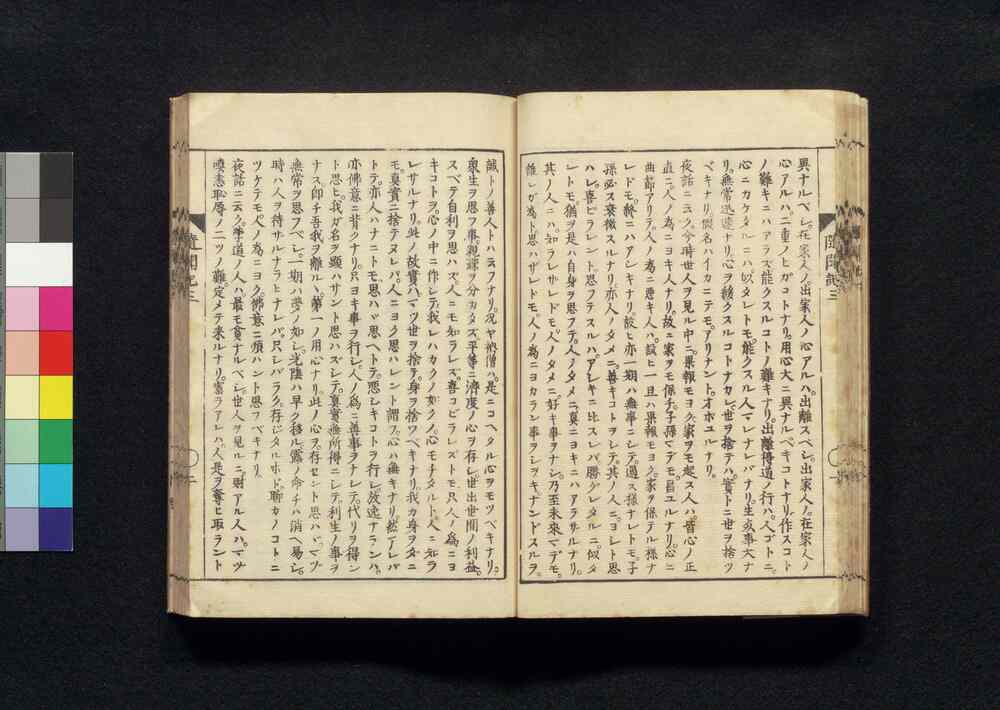 異ナルベシ。在家人ノ心アルハ。出離スベシ。出家人ノ。在家人ノ
心アルハ。二重ノヒガコトナリ。用心大ニ異ナルベキコトナリ。作スコト
ノ難キニハアラズ。能クスルコトノ難キナリ。出離得道ノ行ハ。人ゴトニ。
心ニカケタルニハ似タレトモ。能クスル人マレナレバナリ。生死事大ナ
リ。無常迅速ナリ。心ヲ緩クスルコトナカレ。世ヲ捨テハ。實トニ世ヲ捨ツ
ベキナリ。假名ハイカニテモ。アリナント。オボユルナリ。
夜話ニ云ク。今時世人ヲ見ル中ニ。果報モヨク。家ヲモ起ス人ハ。皆心ノ正
直ニ。人ノ為ニヨキ人ナリ。故ニ家ヲモ保チ。子孫マデモ。昌ユルナリ。心ニ
曲節アリテ。人ノ為ニ悪キ人ハ。設ヒ一旦ハ果報モヨク。家ヲ保テル様ナ
レドモ。終ニハアシキナリ。設ヒ亦一期ハ無事ニシテ。過ス様ナレトモ。子
孫必ス衰微スルナリ。亦人ノタメニ。善キコトヲシテ。其ノ人ニ。ヨシト思
ハレ。喜ビラレント思フテスルハ。アシキニ比スレバ。勝グレタルニ似タ
レトモ。猶ヲ是ハ自身ヲ思フテ。人ノタメニ。真ニヨキニハアラザルナリ。
其ノ人ニハ。知ラレザレドモ。人ノタメニ。好キ事ヲナシ。乃至未來マデモ。
誰レガ為ト思ハザレドモ。人ノ為ニヨカラン事ヲシヲキナンドスルヲ。
誠トノ善人トハ云フナリ。況ヤ衲僧ハ。是ニコヘタル心ヲモツベキナリ。
衆生ヲ思フ事。親疎ヲ分カタズ。平等ニ濟度ノ心ヲ存シ。世出世間ノ利益。
スベテ自利ヲ思ハズ。人ニモ知ラレズ。喜コビラレズトモ。只人ノ為ニヨ
キコトヲ。心ノ中ニ作シテ。我レハカクノ如クノ。心モチタルト。人ニ知ラ
レサルナリ。此ノ故實ハ。マツ世ヲ捨テ。身ヲ捨ツベキナリ。我カ身ヲダニ
モ。真實ニ捨テヌレバ。人ニヨク思ハレント謂フ心ハ無キナリ。然アレバ
トテ。亦人ハナニトモ。思ハヾ思ヘトテ。悪シキコトヲ行シ。放逸ナランハ。
亦佛意ニ背クナリ。只ヨキ事ヲ行シ。人ノ為ニ善事ヲナシテ。代リヲ得ン
ト思ヒ。我ガ名ヲ顯ハサント思ハズシテ。真實無所得ニシテ。利生ノ事ヲ
ナス。即チ吾我ヲ離ルヽ。第一ノ用心ナリ。此ノ心ヲ存セント思ハヾ。マヅ
無常ヲ思フベシ。一期ハ夢ノ如シ。光陰ハ早ク移ル。露ノ命チハ消ヘ易シ。
時ハ人ヲ待サルナラヒナレバ。只シバラク。存シタルホド。聊カノコトニ
ツケテモ。人ノ為ニヨク。佛意ニ順ハント思フベキナリ。
夜話ニ云ク。學道ノ人ハ。最モ貧ナルベシ。世人ヲ見ルニ。財アル人ハ。マヅ
嗔恚恥辱ノ二ツノ難。定メテ來ルナリ。寶ラアレハ。人是ヲ奪ヒ取ラント
隨聞記三
隨聞記三